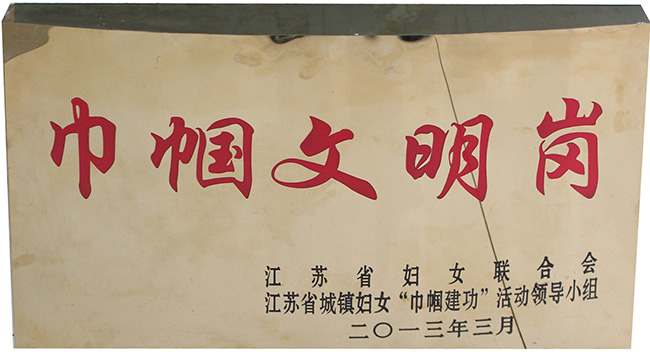 巾帼文明岗
江苏省妇女联合会
江苏省城镇妇女“巾帼建功”活动领导小组
二〇一三年三月